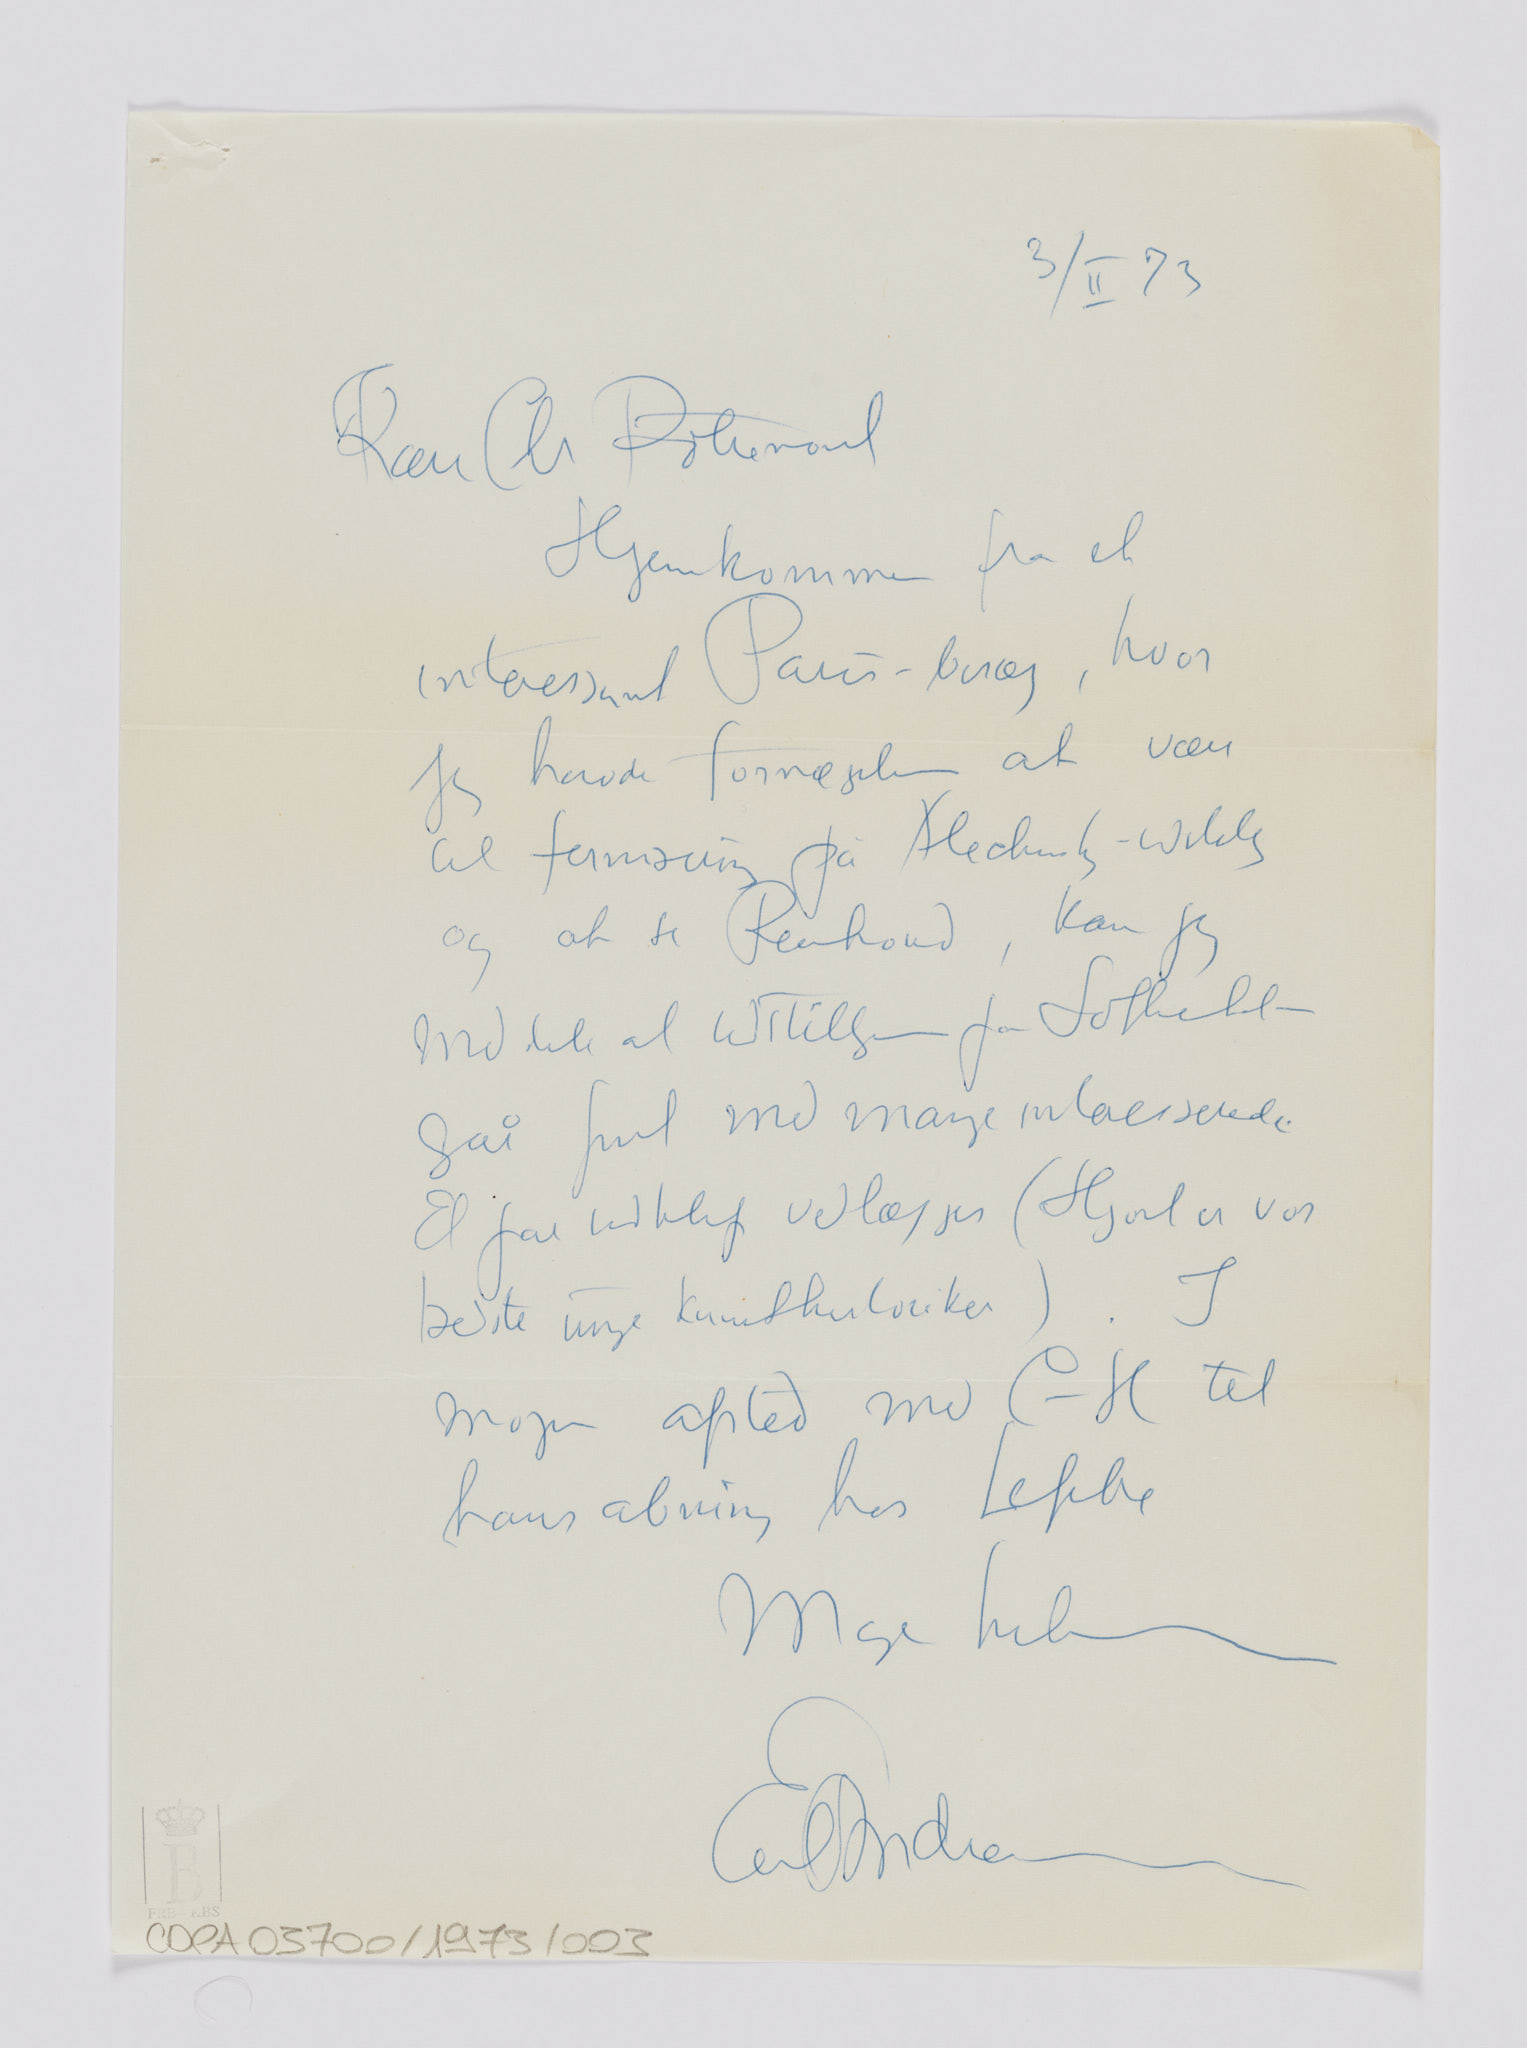 3/II 73
Kære Chr Dotremont
Hjemkommen fra et
interessant Paris-besøg, hvor
jeg havde fornøjelsen at være
til fernisering på Alechinsky-udstilg
og at se Reinhoud, kan jeg
meddele at udstillgen på
går fint med mange interesserede
Et par udklip vedlægges (Hjort er vor
bedste unge kunsthistoriker). I
morgen afsted med C-H til
hans åbning hos Lefebre
Mange hilsener
Erik Andreasen
FRB-KBS
CDPA 03700/1973/003